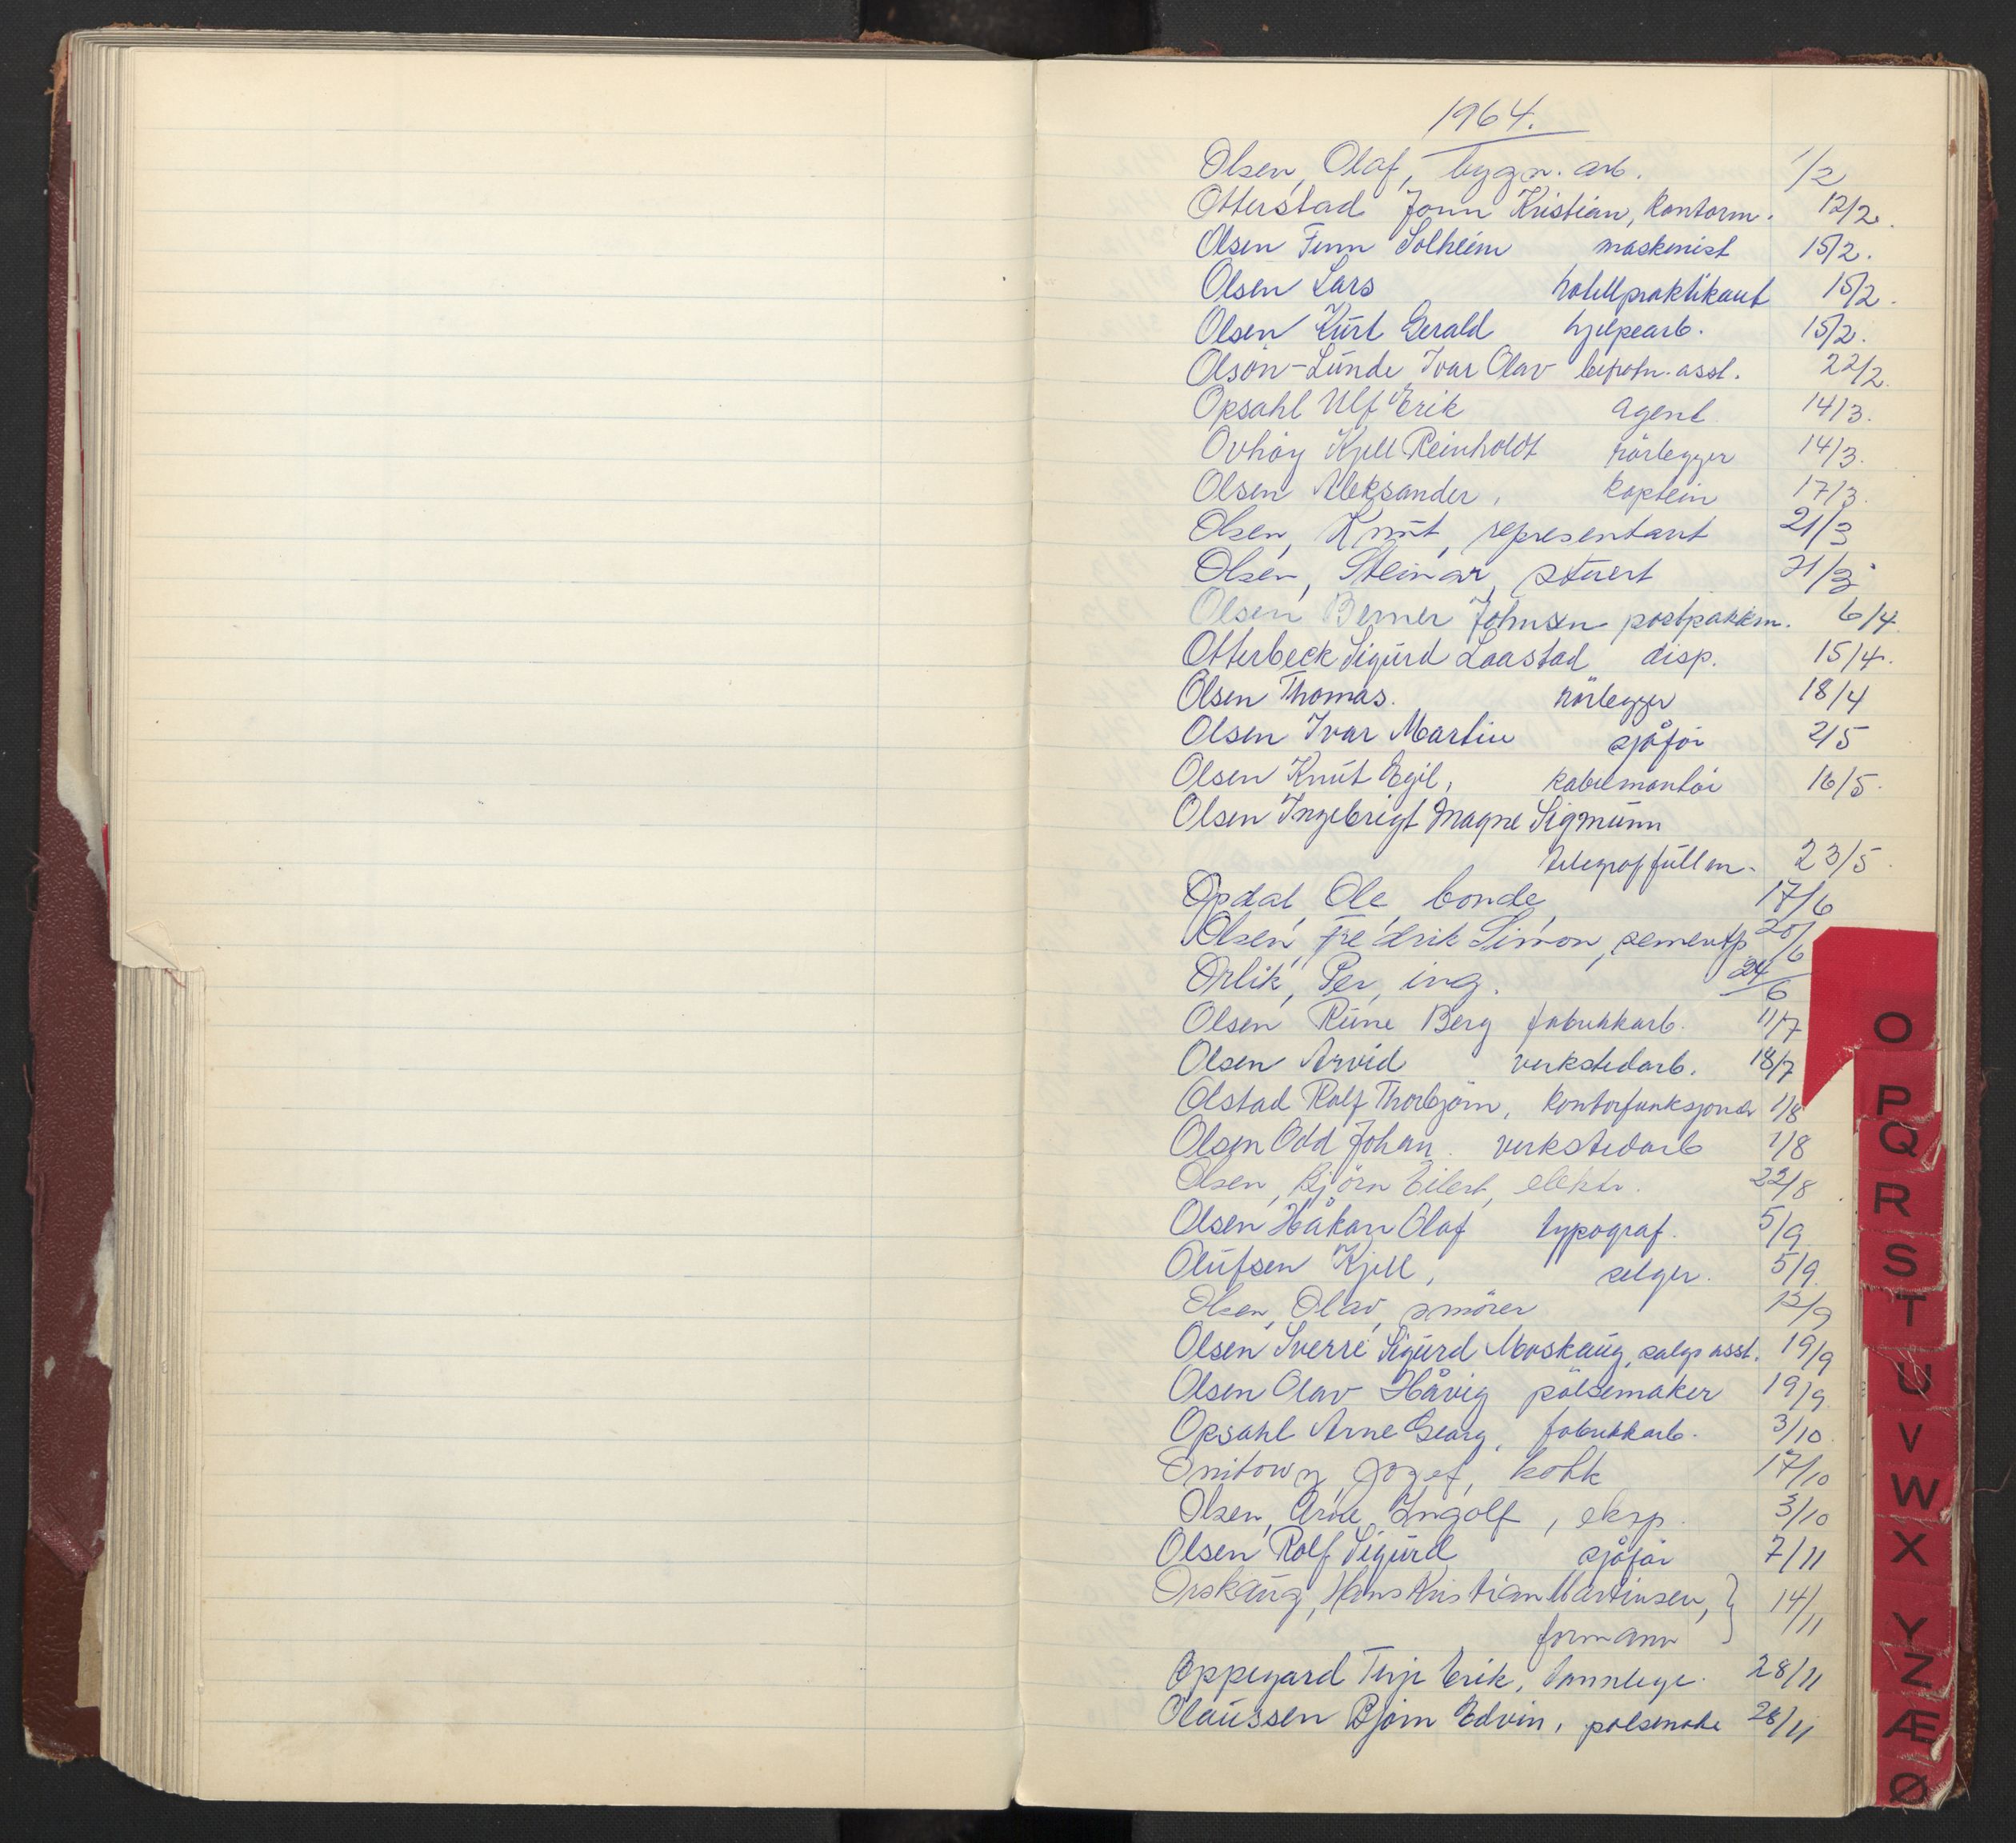 1964.
Olsen, Olaf, bygn. arb. 1/2
Otterstad Jonn Kristian, kontorm. 12/2.
Olsen Finn Solheim maskinist 15/2.
Olsen Lars hotellpraktikant 15/2.
Olsen Kurt Gerald hjelpearb. 15/2.
Olson-Lunde Ivar Olav asst. 22/2.
Opsahl Ulf Erik agent 14/3.
Ovhøy Kjell Reinholdt rørlegger 14/3.
Olsen Aleksander, kaptein 17/3.
Olsen, Knut, representant 21/3
Olsen, Steinar, stuert 21/3
Olsen Berner Johnsen postpakkm. 6/4.
Otterbeck Sigurd Laastad disp. 15/4.
Olsen Thomas. rørlegger 18/4
Olsen Ivar Martin sjåfør 2/5
Olsen Knut Egil, kabelmontør 16/5.
Olsen Ingebrigt Magne Sigmunn
telegraffullm. 23/5.
Opdal, Ole, bonde, 17/6
Olsen, Fredrik Simon, sementp 20/6
Orlik, Per, ing. 24/6
Olsen Rune Berg fabrikkarb. 11/7
Olsen Arvid verkstedarb. 18/7
Olstad Rolf Thorbjørn, kontorfunksjonær 1/8
Olsen Odd Johan. verkstedarb 1/8
Olsen, Bjørn Eilert, elektr. 22/8.
Olsen Håkon Olaf typograf. 5/9
Olufsen Kjell, selger. 5/9.
Olsen, Olav, smører 12/9
Olsen Sverre Sigurd Moskaug, salgs asst. 19/9
Olsen Olav Håvig pølsemaker 19/9
Opsahl Arne Georg, fabrikkarb. 3/10.
Onitowz, Jozef, kokk 17/10
Olsen, Arve Ingolf, eksp. 3/10
Olsen Rolf Sigurd sjåfør 7/11
Orskaug, Hans Kristian Martinsen, } 14/11
formann
Oppegard Terje Erik, tannlege. 28/11
Olaussen Bjørn Edvin, pølsemake 28/11
O
P
Q
R
S
T
U
V
W
X
Y
Z
Æ
Ø